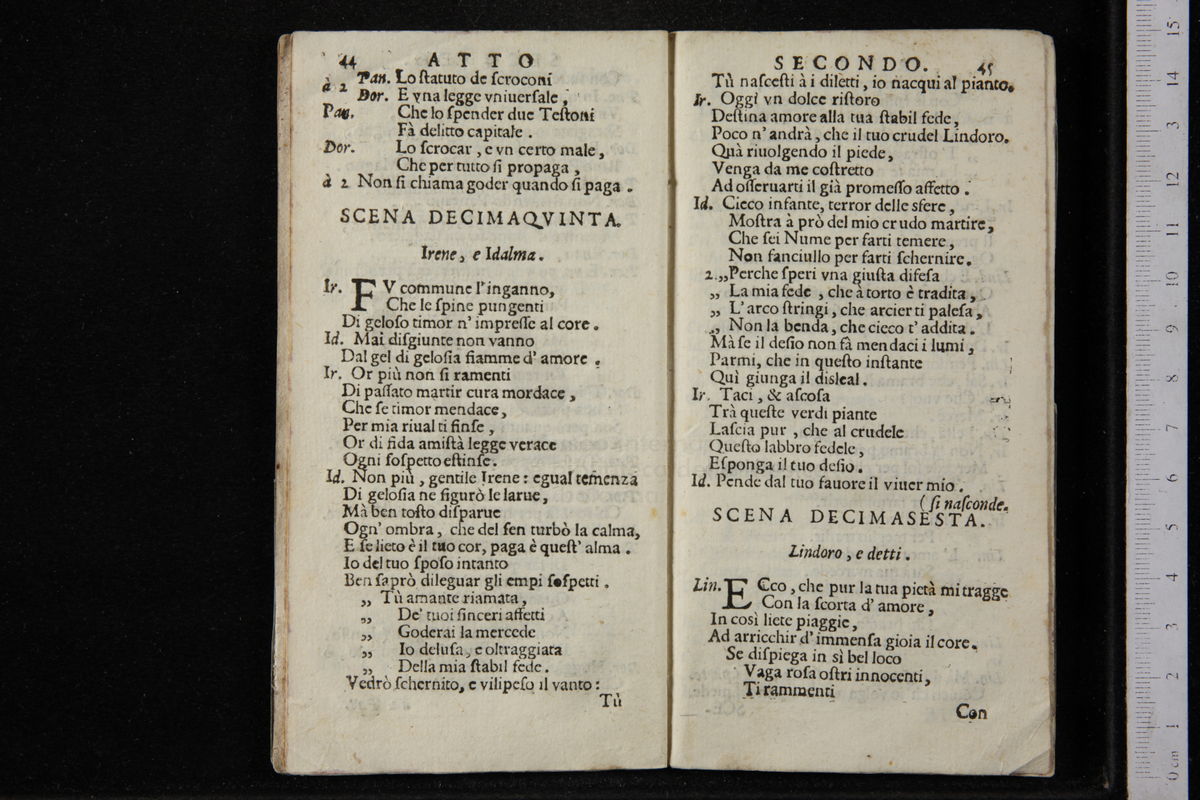 44 ATTO
à 2 Pan. Lo ſtatuto de ſcroconi
Dor. E vna legge vniuerſale,
Pan. Che lo ſpender due Teſtoni
Fà delitto capitale.
Dor. Lo ſcrocar, e vn certo male,
Che per tutto ſi propaga,
à 2 Non ſi chiama goder quando ſi paga.
SCENA DECIMAQVINTA.
Irene, e Idalma.
Ir. FV commune l'inganno,
Che le ſpine pungenti
Di geloſo timor n' impreſſe al core.
Id. Mai diſgiunte non vanno
Dal gel di geloſia fiamme d' amore.
Ir. Or più non ſi ramenti
Di paſſato martir cura mordace,
Che ſe timor mendace,
Per mia riual ti finſe,
Or di fida amiſtà legge verace
Ogni ſoſpetto eſtinſe.
Id. Non più, gentile Irene: egual temenza
Di geloſia ne figurò le larue,
Mà ben toſto diſparue
Ogn' ombra, che del ſen turbò la calma,
E ſe lieto è il tuo cor, paga è queſt' alma.
Io del tuo ſpoſo intanto
Ben ſaprò dileguar gli empi ſoſpetti.
„ Tù amante riamata,
„ De' tuoi ſinceri affetti
„ Goderai la mercede
„ Io deluſa, e oltraggiata
„ Della mia ſtabil fede.
Vedrò ſchernito, e vilipeſo il vanto:
Tù
SECONDO. 45
Tù naſceſti à i diletti, io nacqui al pianto.
Ir. Oggi vn dolce riſtoro
Deſtina amore alla tua ſtabil fede,
Poco n' andrà, che il tuo crudel Lindoro.
Quà riuolgendo il piede,
Venga da me coſtretto
Ad oſſeruarti il già promeſſo affetto.
Id. Cieco infante, terror delle sfere,
Moſtra à prò del mio crudo martire,
Che ſei Nume per farti temere,
Non fanciullo per farti ſchernire.
2. „Perche ſperi vna giuſta difeſa
„ La mia fede, che à torto è tradita,
„ L' arco ſtringi, che arcier ti paleſa,
„ Non la benda, che cieco t' addita.
Mà ſe il deſio non fà mendaci i lumi,
Parmi, che in queſto inſtante
Quì giunga il disleal.
Ir. Taci, & aſcoſa
Trà queſte verdi piante
Laſcia pur, che al crudele
Queſto labbro fedele,
Eſponga il tuo deſio.
Id. Pende dal tuo fauore il viuer mio.
(ſi naſconde.
SCENA DECIMASESTA.
Lindoro, e detti.
Lin. ECco, che pur la tua pietà mi tragge
Con la ſcorta d' amore,
In così liete piaggie,
Ad arricchir d' immenſa gioia il core.
Se diſpiega in sì bel loco
Vaga roſa oſtri innocenti,
Ti rammenti
Con
0 cm 1 2 3 4 5 6 7 8 9 10 11 12 13 14 15